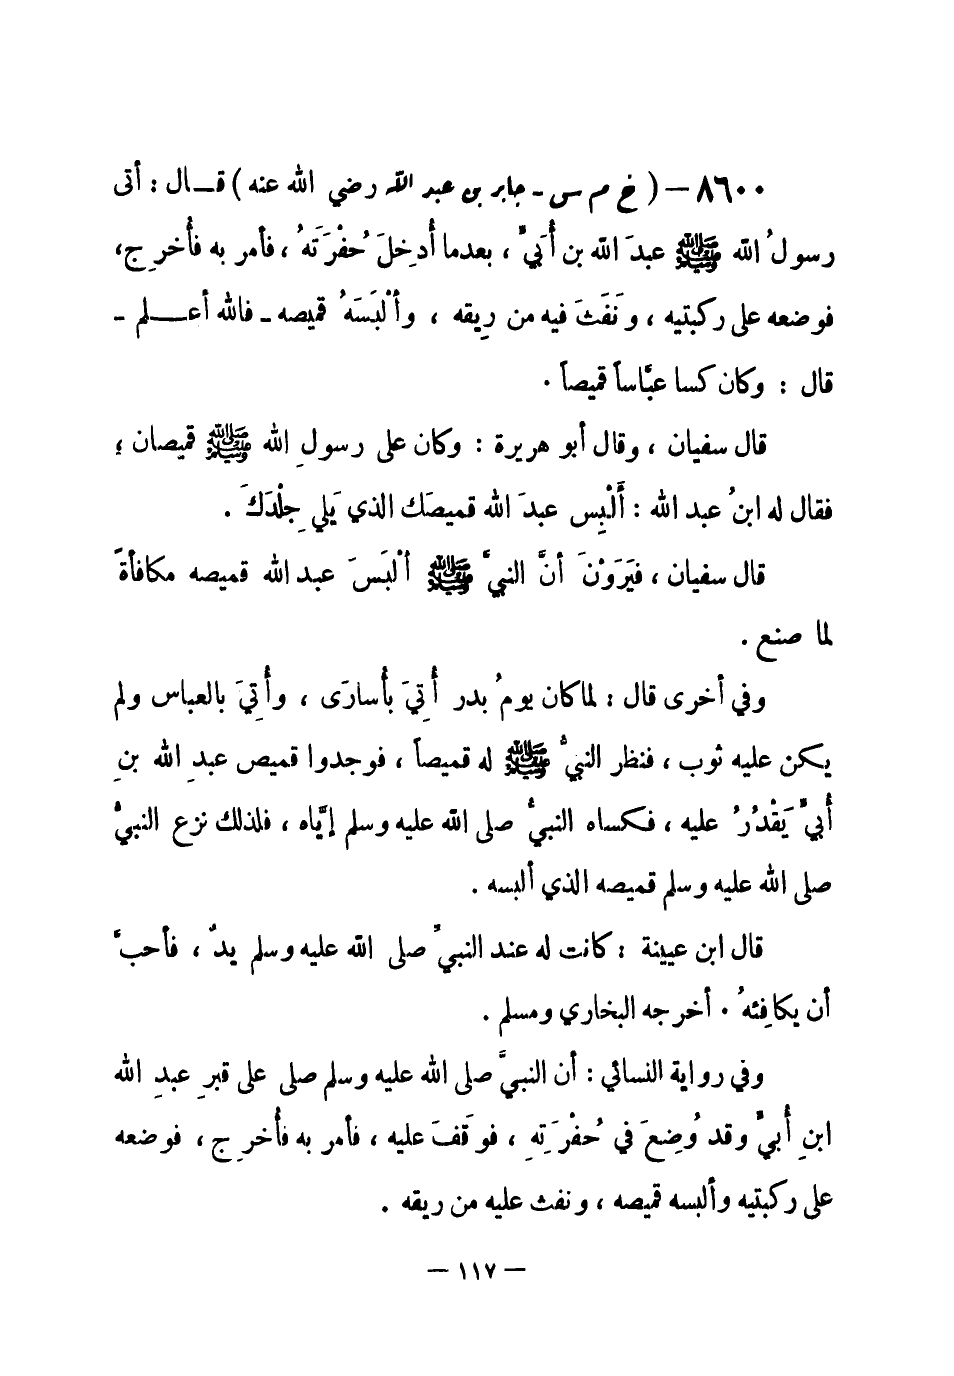 ٨٦٠٠ – ( خ م س - جابر بن عبد الله رضي الله عنه ) قـال : أتى
رسولُ الله ﷺ عبدَ الله بن أُبَيٍّ ، بعدما أُدخِلَ حُفْرَتَهُ ، فأمر به فأُخرِج،
فوضعه على ركبتيه ، ونَفَثَ فيه من رِيقه ، وألْبَسَهُ قميصه - فالله أعـلم -
قال : وكان كسا عبَّاساً قميصاً .
قال سفيان ، وقال أبو هريرة : وكان على رسولِ الله ﷺ قميصان ؛
فقال له ابنُ عبد الله : أَلْبِس عبدَ الله قميصَك الذي يَلي جِلْدَكَ .
قال سفيان ، فيَرَوْنَ أنَّ النبيَّ ﷺ ألْبَسَ عبد الله قميصه مكافأةً
لما صنع .
وفي أخرى قال : لما كان يومُ بدر أُتِيَ بأُسارَى ، وأُتِيَ بالعباس ولم
يكن عليه ثوب ، فنظر النبيُّ ﷺ له قميصاً ، فوجدوا قميص عبدِ الله بنِ
أُبيٍّ يَقْدُرُ عليه ، فكساه النبيُّ صلى الله عليه وسلم إيَّاه ، فلذلك نزع النبيُّ
صلى الله عليه وسلم قميصه الذي ألبسه .
قال ابن عيينة : كانت له عند النبيِّ صلى الله عليه وسلم يدٌ ، فأحبَّ
أن يكافِئهُ . أخرجه البخاري ومسلم .
وفي رواية النسائي : أن النبيَّ صلى الله عليه وسلم صلى على قبرِ عبدِ الله
ابنِ أُبيٍّ وقد وُضِعَ في حُفْرَتِهِ ، فوَقَفَ عليه ، فأمر به فأُخرِج ، فوضعه
على ركبتيه وألبسه قميصه ، ونفث عليه من ريقه .
– ١١٧ –